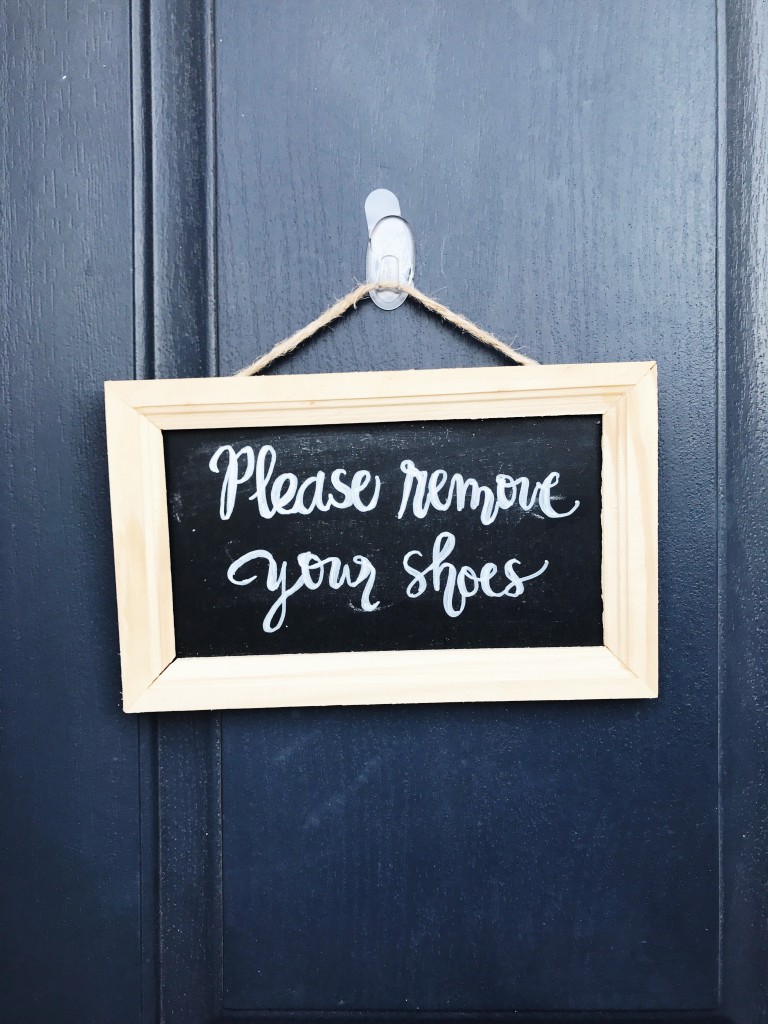 Please remove
your shoes